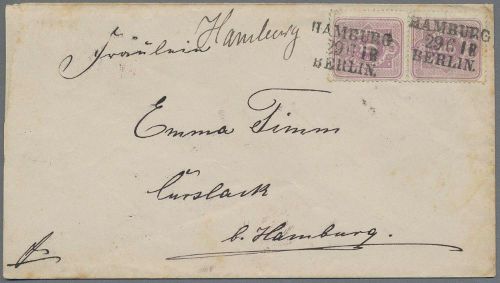 Hamburg
HAMBURG
29 6 I R
BERLIN.
HAMBURG
29 6 I R
BERLIN.
Fräulein
Emma Timm
Curslack
b. Hamburg.